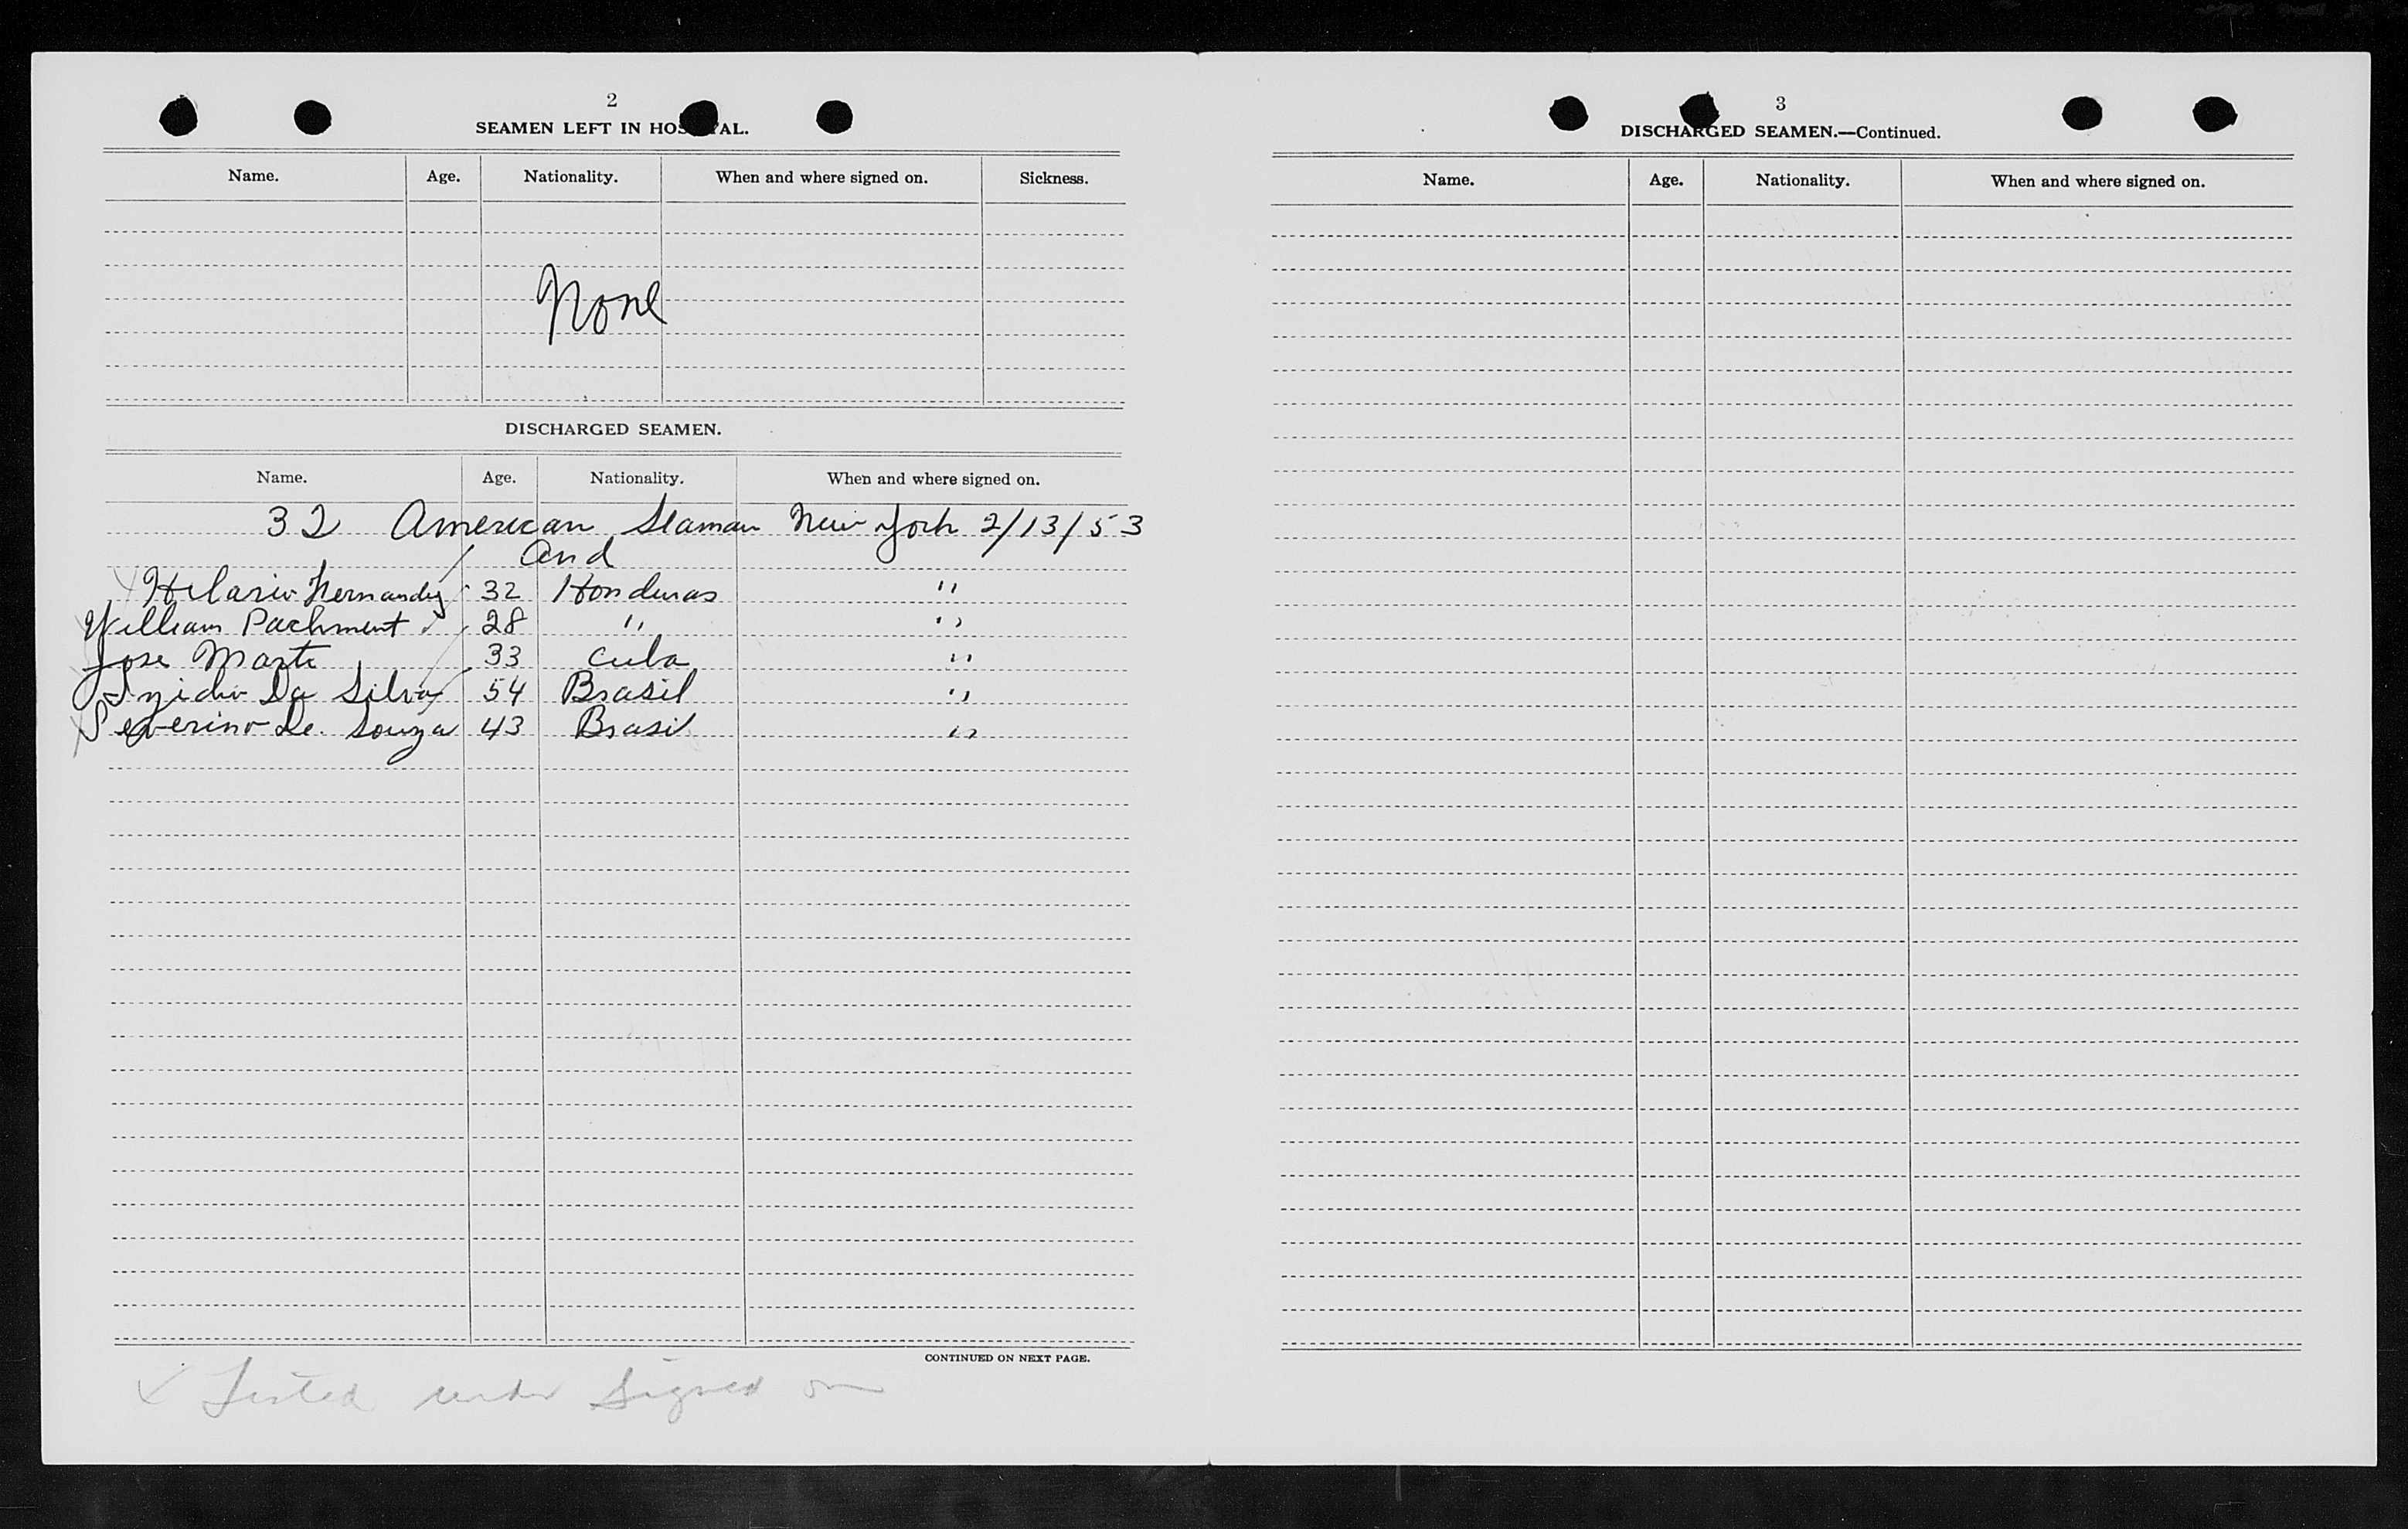 2
SEAMEN LEFT IN HOSPITAL.
Name. Age. Nationality. When and where signed on. Sickness.
None
DISCHARGED SEAMEN.
Name. Age. Nationality. When and where signed on.
32 American Seaman New York 2/13/53
and
Hilario Hernandez 32 Honduras "
William Pachment 28 " "
Jose Marti 33 Cuba "
Da Silva 54 Brasil "
Severino De Souza 43 Brasil "
CONTINUED ON NEXT PAGE.
✓ Listed under Signed on
3
DISCHARGED SEAMEN.—Continued.
Name. Age. Nationality. When and where signed on.